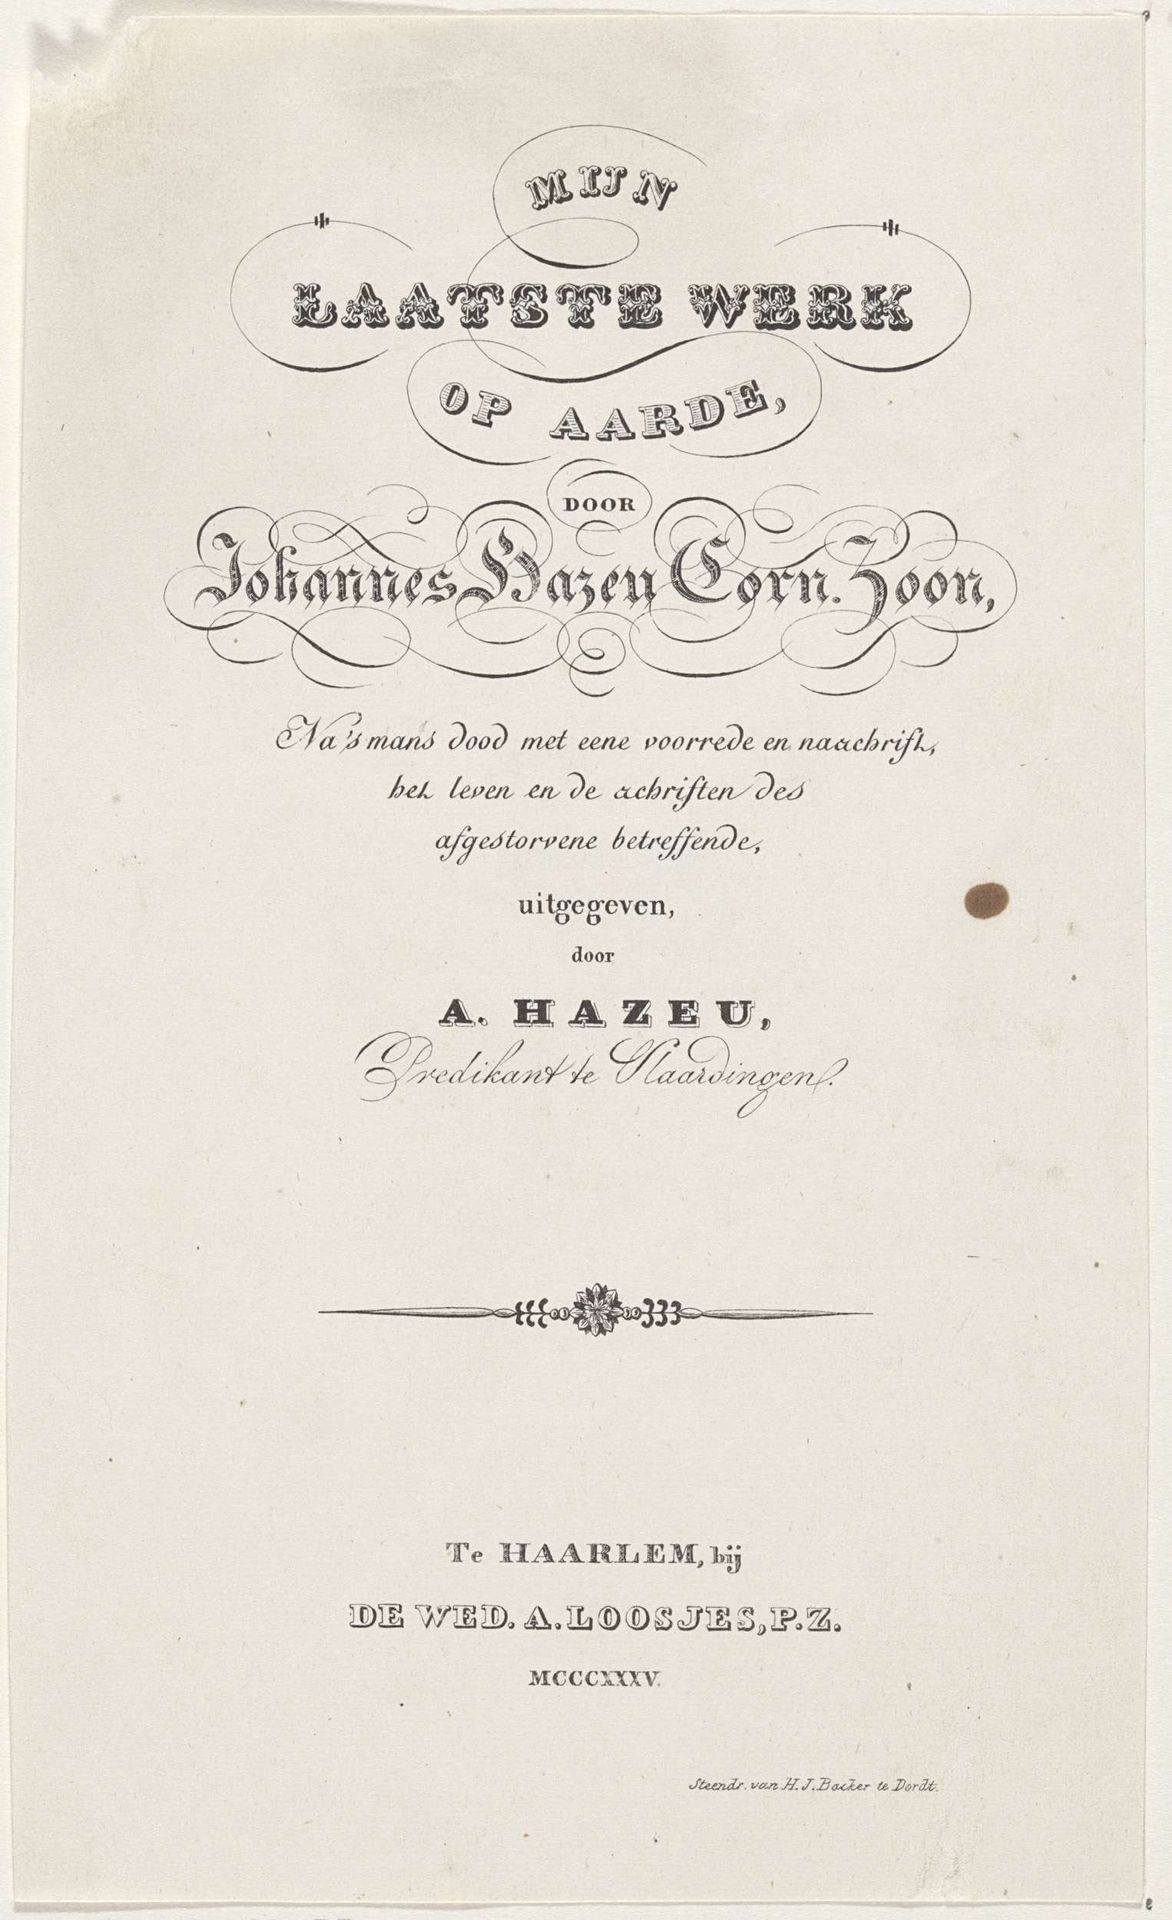 MIJN
LAATSTE WERK
OP AARDE,
DOOR
Johannes Hazeu Corn. Zoon,
Na 's mans dood met eene voorrede en naschrift,
het leven en de schriften des
afgestorvene betreffende,
uitgegeven,
door
A. HAZEU,
Predikant te Vlaardingen.
Te HAARLEM, bij
DE WED. A. LOOSJES, P.Z.
MCCCXXXV.
Steendr. van H. J. Backer te Dordt.